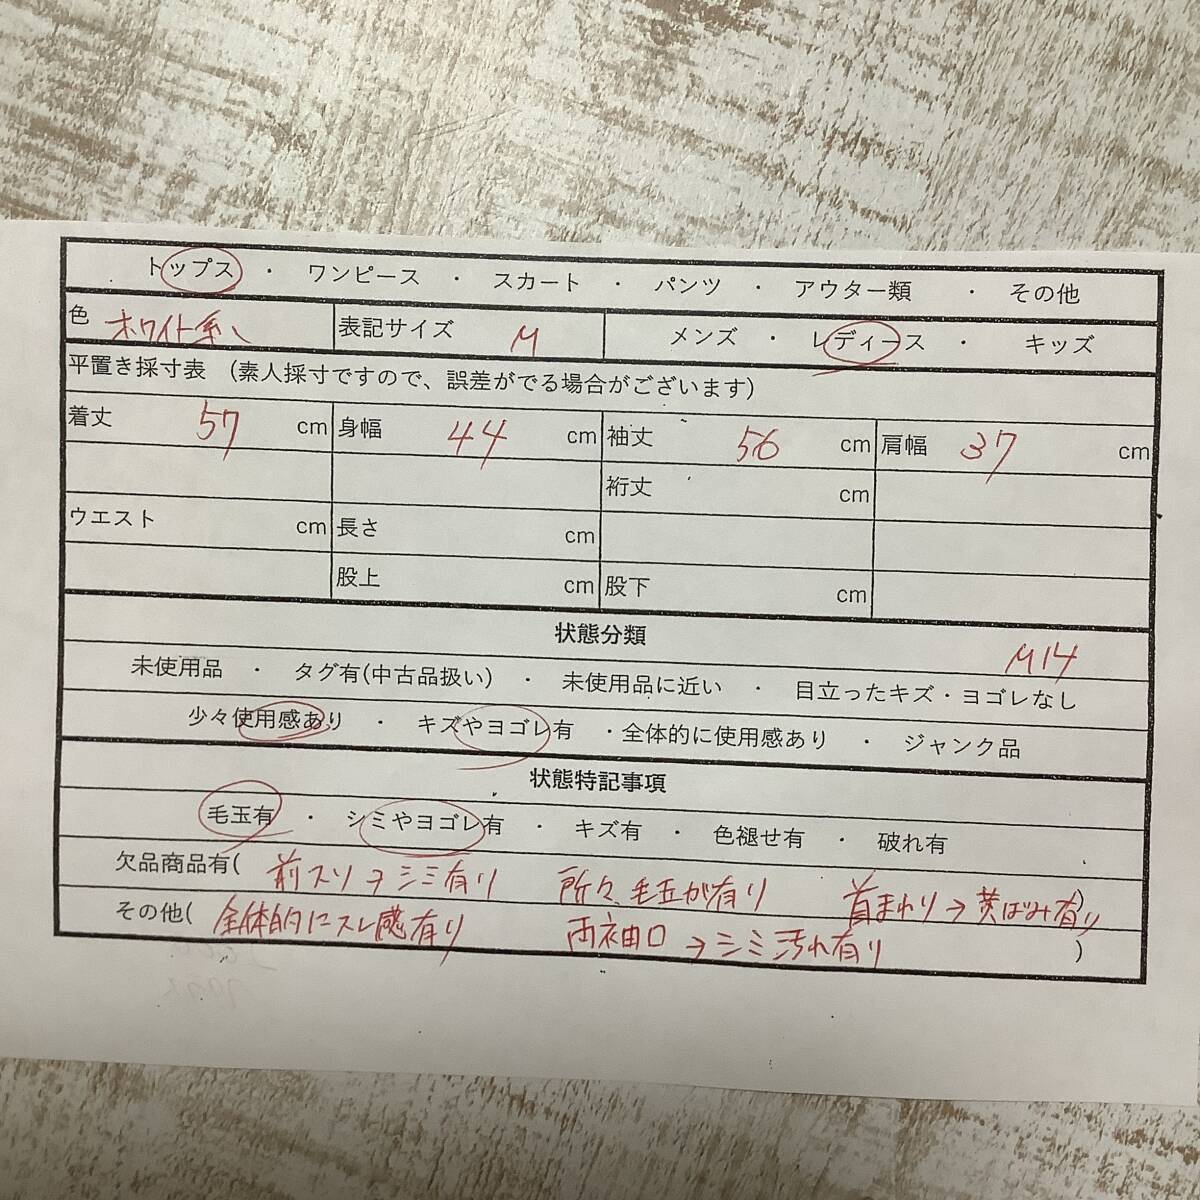 トップス ・ ワンピース ・ スカート ・ パンツ ・ アウター類 ・ その他
色 ホワイト系 表記サイズ M メンズ ・ レディース ・ キッズ
平置き採寸表 (素人採寸ですので、誤差がでる場合がございます)
着丈 57 cm 身幅 44 cm 袖丈 56 cm 肩幅 37 cm
裄丈 cm
ウエスト cm 長さ cm
股上 cm 股下 cm
状態分類
M14
未使用品 ・ タグ有(中古品扱い) ・ 未使用品に近い ・ 目立ったキズ・ヨゴレなし
少々使用感あり ・ キズやヨゴレ有 ・全体的に使用感あり ・ ジャンク品
状態特記事項
毛玉有 ・ シミやヨゴレ有 ・ キズ有 ・ 色褪せ有 ・ 破れ有
欠品商品有( 前スソ→シミ有り 所々、毛玉が有り 首まわり→黄ばみ有り )
その他( 全体的にスレ感有り 両袖口→シミ汚れ有り )